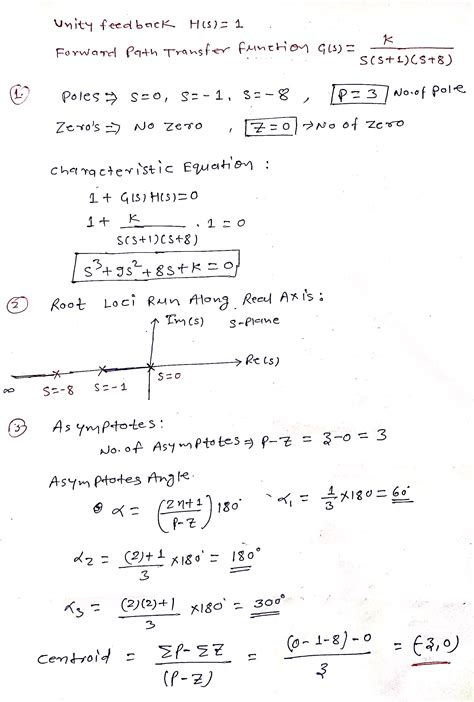 Unity feedback H(s) = 1
Forward Path Transfer function G(s) = K / S(S+1)(S+8)
① Poles ⇒ S=0, S=-1, S=-8 , P=3 No. of Pole
Zero's ⇒ No Zero , Z=0 → No of Zero
Characteristic Equation :
1 + G(s) H(s) = 0
1 + K / S(S+1)(S+8) . 1 = 0
S³+9S²+8S+K=0
② Root Loci Run Along Real Axis :
Im(s) S-Plane
Re(s)
∞ S=-8 S=-1 S=0
③ Asymptotes :
No. of Asymptotes ⇒ P-Z = 3-0 = 3
Asymptotes Angle.
α = (2n+1 / P-Z) 180° α₁ = 1/3 ×180 = 60°
α₂ = (2)+1 / 3 ×180° = 180°
α₃ = (2)(2)+1 / 3 ×180° = 300°
Centroid = ΣP-ΣZ / (P-Z) = (0-1-8)-0 / 3 = (-3,0)